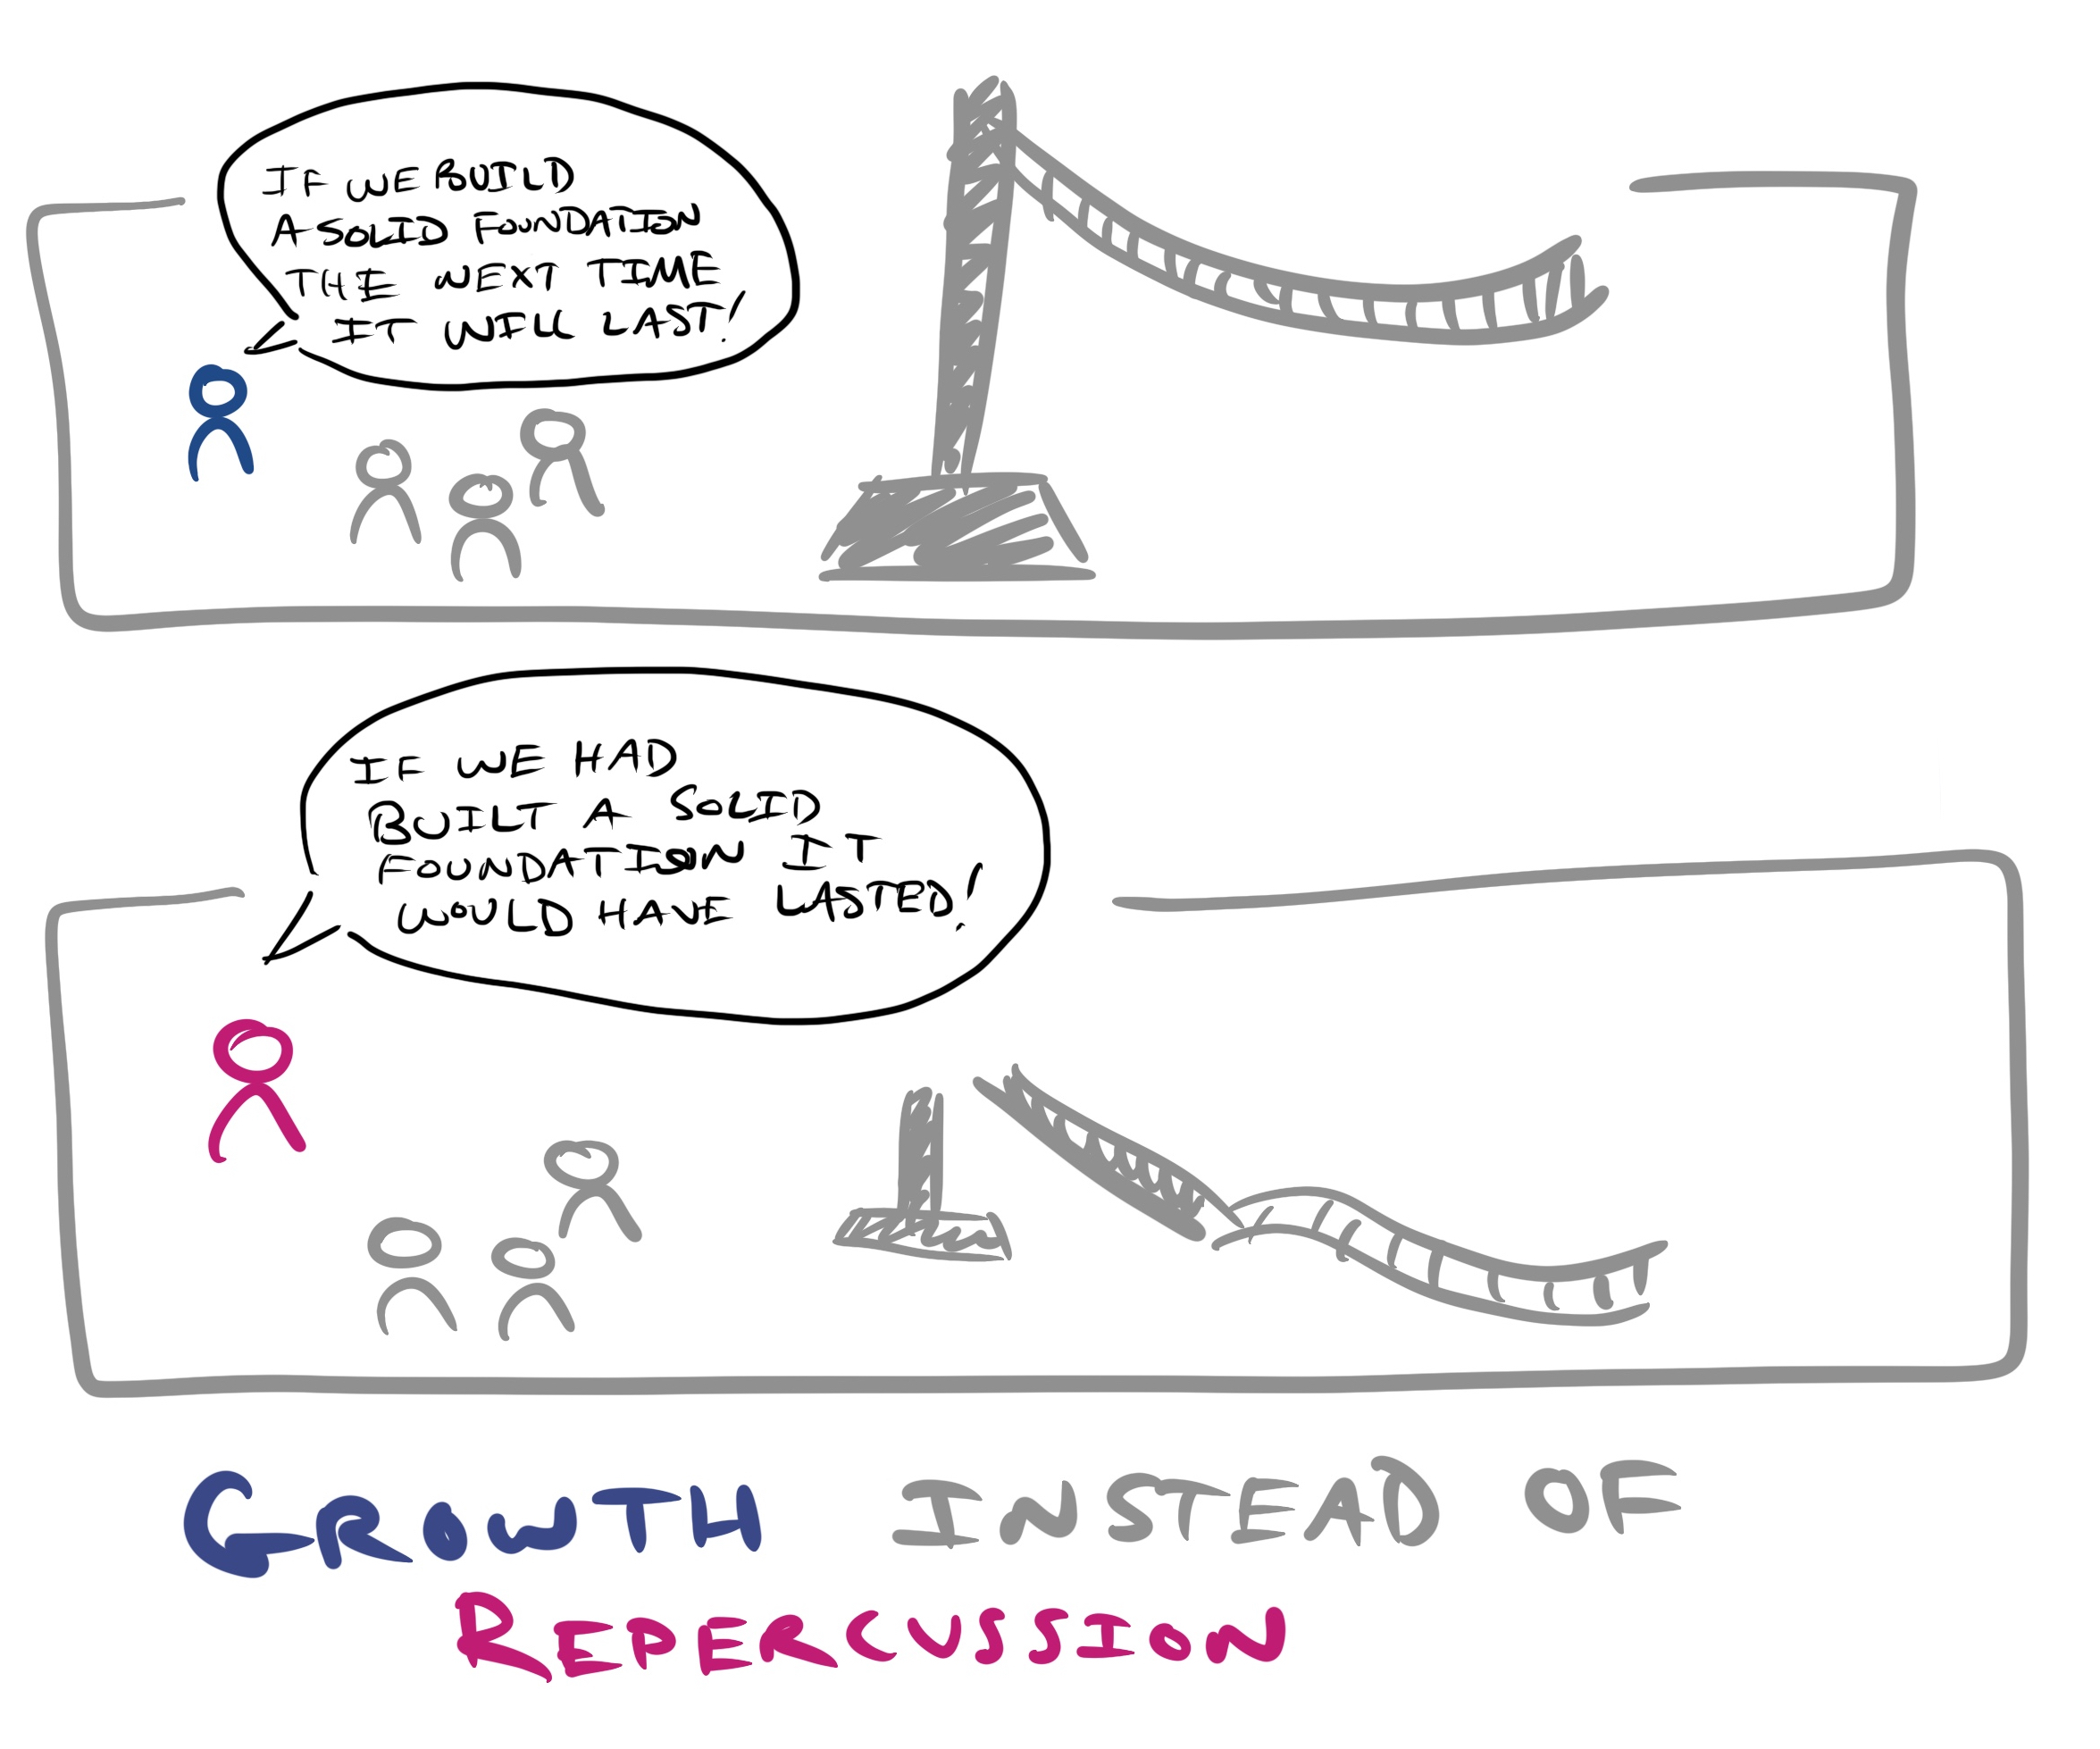 IF WE BUILD
A SOLID FOUNDATION
THE NEXT TIME
IT WILL LAST!
IF WE HAD
BUILT A SOLID
FOUNDATION IT
WOULD HAVE LASTED!
GROWTH INSTEAD OF
REPERCUSSION